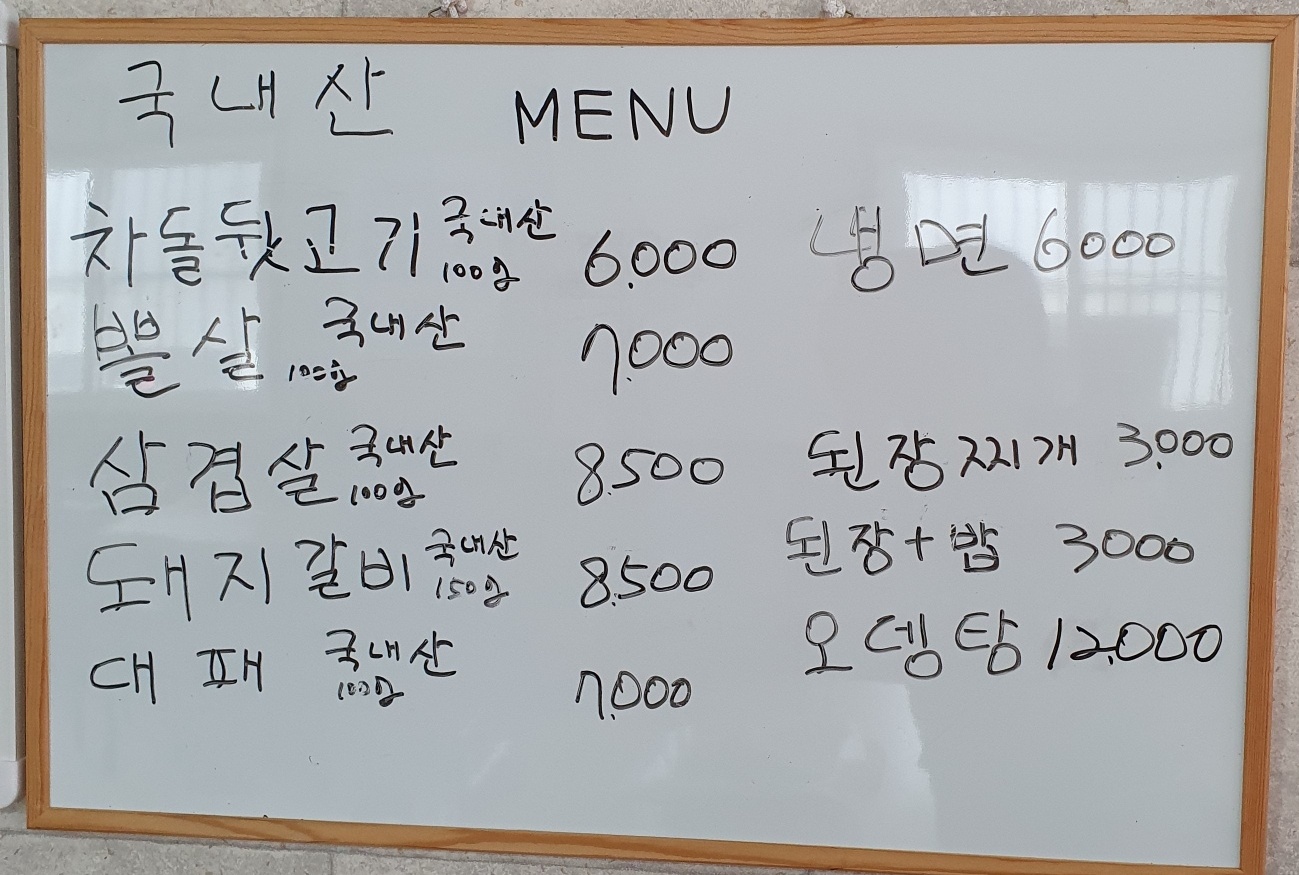 국내산 MENU
차돌뒷고기 국내산 100g 6.000
뽈살 국내산 100g 7.000
삼겹살 국내산 100g 8.500
돼지갈비 국내산 150g 8.500
대패 국내산 100g 7.000
냉면 6000
된장찌개 3.000
된장+밥 3000
오뎅탕 12.000